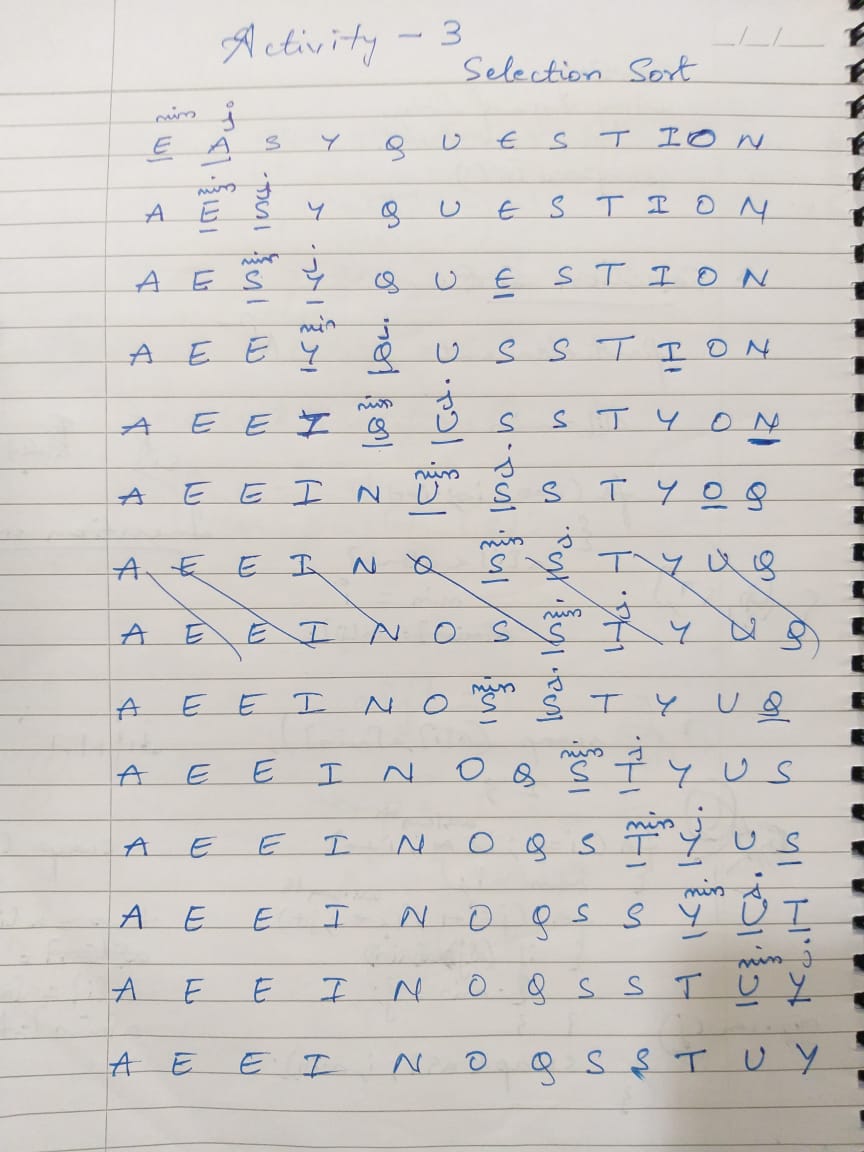 Activity - 3
_/_/_
Selection Sort
min j
E A S Y Q U E S T I O N
min j
A E S Y Q U E S T I O N
min j
A E S Y Q U E S T I O N
min j
A E E Y Q U S S T I O N
min j
A E E I Q U S S T Y O N
min j
A E E I N U S S T Y O Q
min j
A E E I N O S S T Y U Q
min j
A E E I N O S S T Y U Q
min j
A E E I N O S S T Y U Q
min j
A E E I N O Q S T Y U S
min j
A E E I N O Q S T Y U S
min j
A E E I N O Q S S Y U T
min j
A E E I N O Q S S T U Y
A E E I N O Q S S T U Y